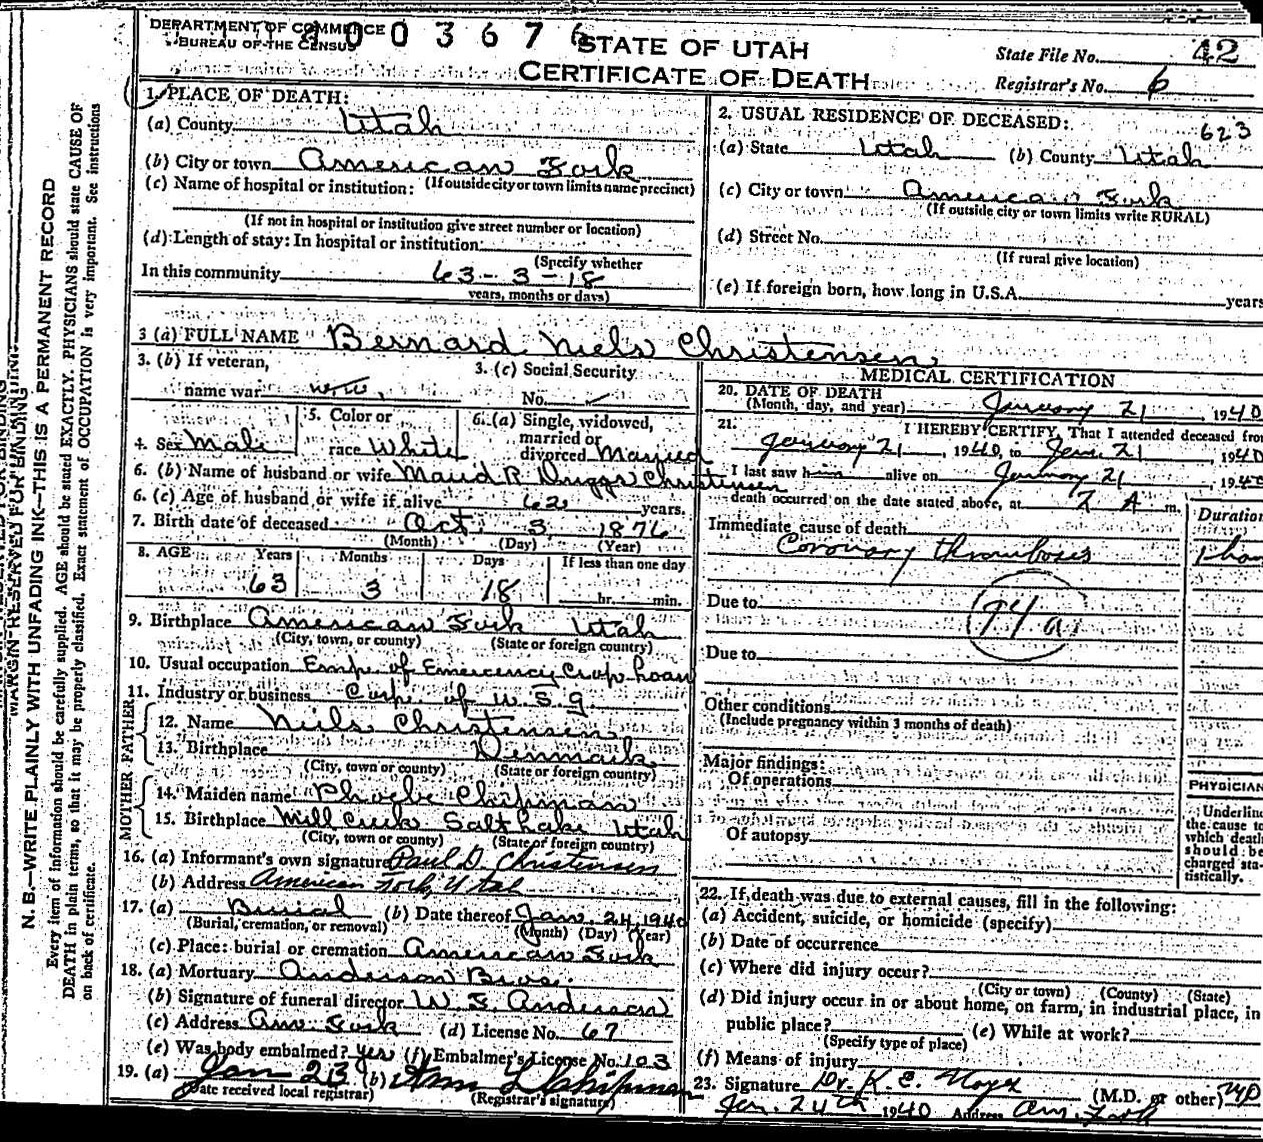 DEPARTMENT OF COMMERCE
BUREAU OF THE CENSUS
0 0 3 6 7 6
STATE OF UTAH
CERTIFICATE OF DEATH
State File No. 42
Registrar's No. 6
1. PLACE OF DEATH:
(a) County Utah
(b) City or town American Fork
(If outside city or town limits name precinct)
(c) Name of hospital or institution:
(If not in hospital or institution give street number or location)
(d) Length of stay: In hospital or institution
(Specify whether
In this community 63-3-18
years, months or days)
2. USUAL RESIDENCE OF DECEASED:
623
(a) State Utah (b) County Utah
(c) City or town American Fork
(If outside city or town limits write RURAL)
(d) Street No.
(If rural give location)
(e) If foreign born, how long in U.S.A. years
3 (a) FULL NAME Bernard Niels Christensen
3. (b) If veteran,
name war
3. (c) Social Security
No.
4. Sex Male
5. Color or
race White
6. (a) Single, widowed,
married or
divorced Married
6. (b) Name of husband or wife Maud R Driggs Christensen
6. (c) Age of husband or wife if alive 62 years.
7. Birth date of deceased Oct. 3 1876
(Month) (Day) (Year)
8. AGE Years Months Days If less than one day
63 3 18 hr. min.
9. Birthplace American Fork Utah
(City, town, or county) (State or foreign country)
10. Usual occupation Empe. of Emergency Crop Loan
11. Industry or business Corp. of U. S. G.
FATHER
12. Name Niels Christensen
13. Birthplace Denmark
(City, town or county) (State or foreign country)
MOTHER
14. Maiden name Phoebe Chipman
15. Birthplace Mill Creek Salt Lake Utah
(City, town or county) (State or foreign country)
16. (a) Informant's own signature Paul D. Christensen
(b) Address American Fork, Utah
17. (a) Burial (b) Date thereof Jan. 24, 1940
(Burial, cremation, or removal) (Month) (Day) (Year)
(c) Place: burial or cremation American Fork
18. (a) Mortuary Anderson Bros.
(b) Signature of funeral director W. E. Anderson
(c) Address Am. Fork (d) License No. 67
(e) Was body embalmed? yes (f) Embalmer's License No. 103
19. (a) Jan 23 (b)
Date received local registrar) (Registrar's signature)
MEDICAL CERTIFICATION
20. DATE OF DEATH
(Month, day, and year) January 21 1940
21. I HEREBY CERTIFY, That I attended deceased from
January 21, 1940, to Jan. 21, 1940
I last saw him alive on January 21, 1940
death occurred on the date stated above, at 2 A m.
Duration
Immediate cause of death
Coronary thrombosis
1 hou
Due to
94 a
Due to
Other conditions
(Include pregnancy within 3 months of death)
Major findings:
Of operations
Of autopsy
PHYSICIAN
Underline
the cause to
which death
should be
charged sta-
tistically.
22. If death was due to external causes, fill in the following:
(a) Accident, suicide, or homicide (specify)
(b) Date of occurrence
(c) Where did injury occur?
(City or town) (County) (State)
(d) Did injury occur in or about home, on farm, in industrial place, in
public place? (e) While at work?
(Specify type of place)
(f) Means of injury
23. Signature Dr. K. E. Noyes (M.D. or other) MD
Jan. 24th 1940 Address Am. Fork
MARGIN RESERVED FOR BINDING
N. B.—WRITE PLAINLY WITH UNFADING INK—THIS IS A PERMANENT RECORD
Every item of information should be carefully supplied. AGE should be stated EXACTLY. PHYSICIANS should state CAUSE OF
DEATH in plain terms, so that it may be properly classified. Exact statement of OCCUPATION is very important. See instructions
on back of certificate.